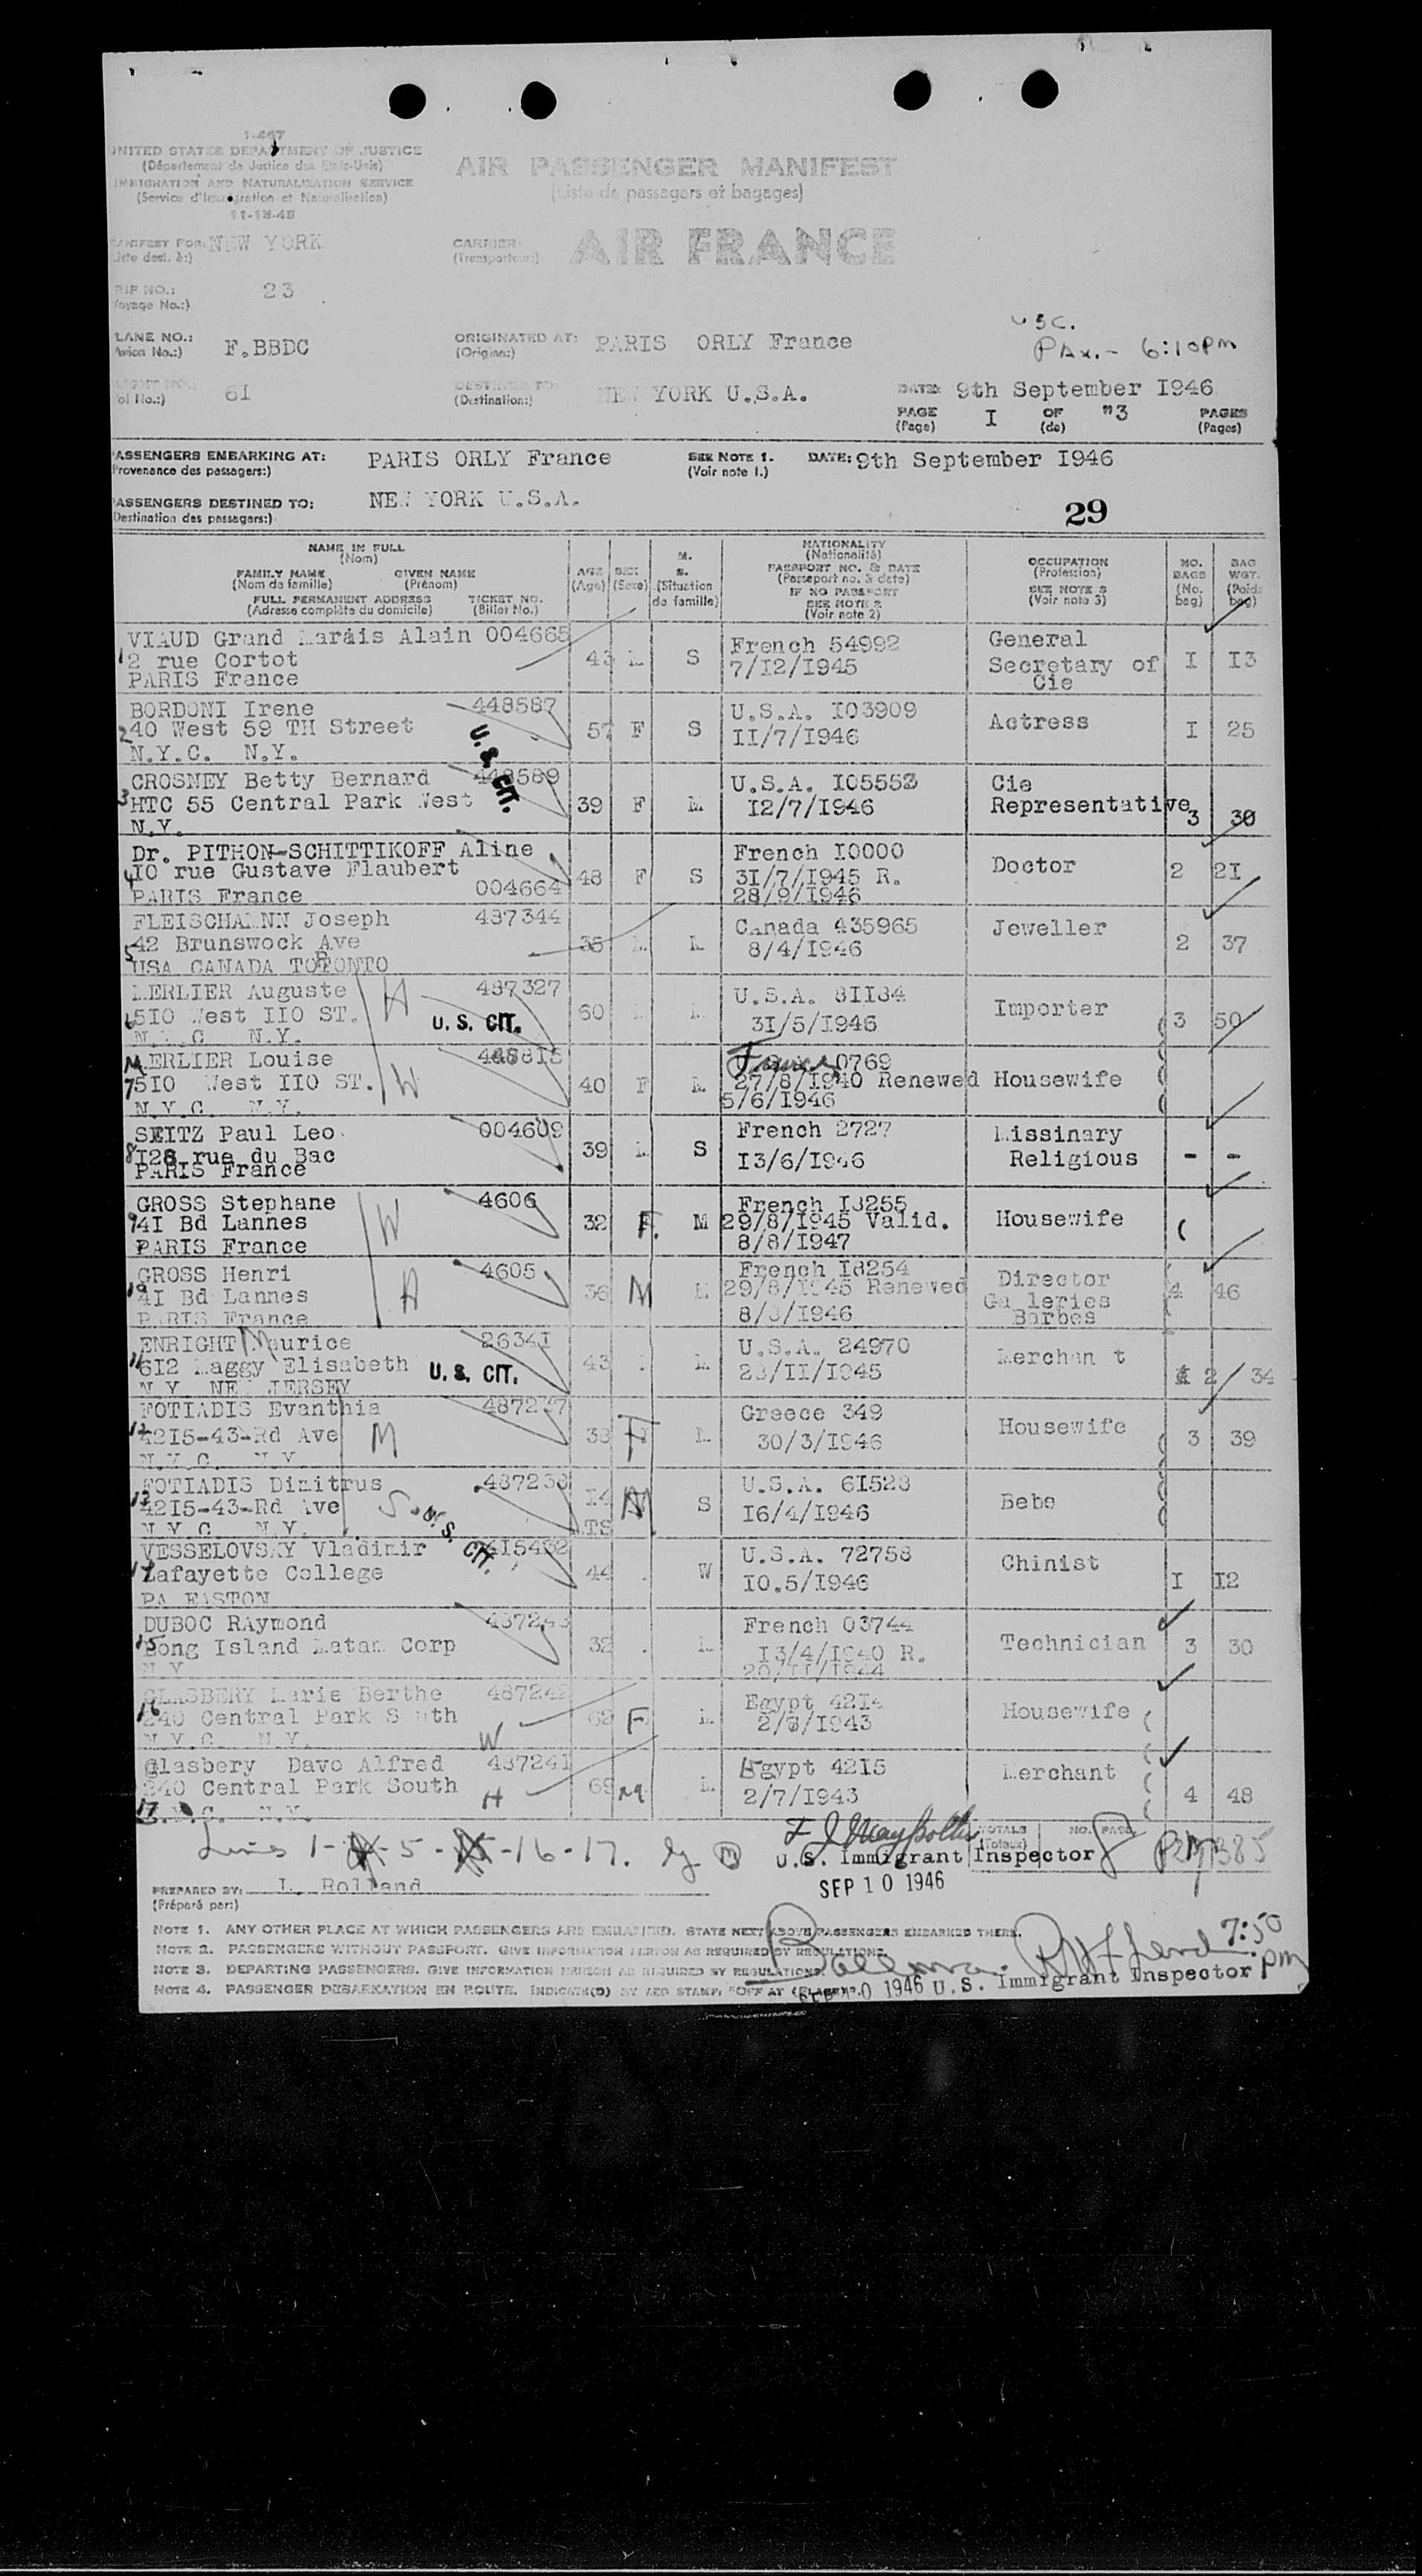 1-467
UNITED STATES DEPARTMENT OF JUSTICE
(Département de Justice des Etats-Unis)
IMMIGRATION AND NATURALIZATION SERVICE
(Service d'Immigration et Naturalisation)
11-18-45
AIR PASSENGER MANIFEST
(Liste de passagers et bagages)
MANIFEST FOR: NEW YORK
CARRIER: AIR FRANCE
(Transporteur:)
TRIP NO.: 23
(Voyage No.:)
U S C.
PAX.- 6:10 PM
PLANE NO.: F.BBDC
(Avion No.:)
ORIGINATED AT: PARIS ORLY France
(Origine:)
61
DESTINED TO: NEW YORK U.S.A.
(Destination:)
DATE: 9th September I946
PAGE I OF "3 PAGES
(Page) (de) (Pages)
PASSENGERS EMBARKING AT: PARIS ORLY France
(Provenance des passagers:)
SEE NOTE 1. DATE: 9th September I946
(Voir note 1.)
PASSENGERS DESTINED TO: NEW YORK U.S.A.
(Destination des passagers:)
29
NAME IN FULL
(Nom)
FAMILY NAME GIVEN NAME
(Nom de famille) (Prénom)
FULL PERMANENT ADDRESS TICKET NO.
(Adresse complète du domicile) (Billet No.)
AGE
(Age)
SEX
(Sexe)
M.
S.
(Situation
de famille)
NATIONALITY
(Nationalité)
PASSPORT NO. & DATE
(Passeport no. & date)
IF NO PASSPORT
SEE NOTE 2
(Voir note 2)
OCCUPATION
(Profession)
SEE NOTE 3
(Voir note 3)
NO.
BAGS
(No.
bag)
BAG
WGT.
(Poids
bag)
1 VIAUD Grand Marais Alain 004665
2 rue Cortot
PARIS France
43 M S
French 54992
7/I2/I945
General
Secretary of
Cie
I I3
2 BORDONI Irene 448587
40 West 59 TH Street
N.Y.C. N.Y.
U.S. CIT.
57 F S
U.S.A. I03909
II/7/I946
Actress
I 25
3 CROSNEY Betty Bernard 448589
HTC 55 Central Park West
N.Y.
39 F M
U.S.A. I05553
I2/7/I946
Cie
Representative
3 30
4 Dr. PITHON-SCHITTIKOFF Aline
IO rue Gustave Flaubert
PARIS France 004664
48 F S
French I0000
3I/7/I945 R.
28/9/I946
Doctor
2 2I
5 FLEISCHAMNN Joseph 487344
42 Brunswock Ave
USA CANADA TORONTO
35 M M
Canada 435965
8/4/I946
Jeweller
2 37
6 MERLIER Auguste 487327
5I0 West II0 ST. H
N.Y.C N.Y.
U. S. CIT.
60 M M
U.S.A. 8II84
3I/5/I946
Importer
3 50
7 MERLIER Louise
5I0 West II0 ST. W
N.Y.C. N.Y.
40 F M
France 0769
27/8/I940 Renewed
5/6/I946
Housewife
8 SEITZ Paul Leo 004609
I28 rue du Bac
PARIS France
39 M S
French 2727
I3/6/I946
Missinary
Religious
- -
9 GROSS Stephane 4606
4I Bd Lannes W
PARIS France
32 F. M
French I8255
29/8/I945 Valid.
8/8/I947
Housewife
10 GROSS Henri 4605
4I Bd Lannes H
PARIS France
36 M M
French I8254
29/8/I945 Renewed
8/8/I946
Director
Galleries
Barbes
4 46
11 ENRIGHT Maurice 2634I
612 Maggy Elisabeth
N.Y NEW JERSEY
U. S. CIT.
43 M
U.S.A. 24970
/II/I945
Merchan t
2 34
12 FOTIADIS Evanthia 487237
42I5-43-Rd Ave M
N.Y.C. N.Y
38 F M
Greece 349
30/3/I946
Housewife
3 39
13 FOTIADIS Dimitrus
42I5-43-Rd Ave S
N.Y.C. N.Y.
U. S. CIT.
I4 M S
U.S.A. 6I528
I6/4/I946
Bebe
14 VESSELOVSKY Vladimir
Lafayette College
PA EASTON
44 W
U.S.A. 72758
I0.5/I946
Chinist
I I2
15 DUBOC RAymond 487243
Long Island Corp
N.Y
32 M
French 03744
I3/4/I940 R.
20/II/I944
Technician
3 30
16 GLASBERY Marie Berthe 487242
240 Central Park South
N.Y.C. N.Y. W
68 F M
Egypt 42I4
2/ /I943
Housewife
17 Glasbery Davo Alfred 48724I
240 Central Park South H
N.Y.C. N.Y.
69 M M
Egypt 42I5
2/7/I943
Merchant
4 48
Lines 1- -5- -16-17.
TOTALS
(Totaux)
NO. PASS.
385
U.S. Immigrant Inspector
SEP 10 1946
PREPARED BY: L. Rolland
(Préparé par:)
NOTE 1. ANY OTHER PLACE AT WHICH PASSENGERS ARE EMBARKED. STATE NEXT ABOVE PASSENGERS EMBARKED THERE.
NOTE 2. PASSENGERS WITHOUT PASSPORT. GIVE INFORMATION HEREON AS REQUIRED BY REGULATIONS.
NOTE 3. DEPARTING PASSENGERS. GIVE INFORMATION HEREON AS REQUIRED BY REGULATIONS.
NOTE 4. PASSENGER DEBARKATION EN ROUTE. INDICATE(D) BY RED STAMP: "OFF AT (PLACE)".
7:50
PM
SEP 10 1946 U.S. Immigrant Inspector